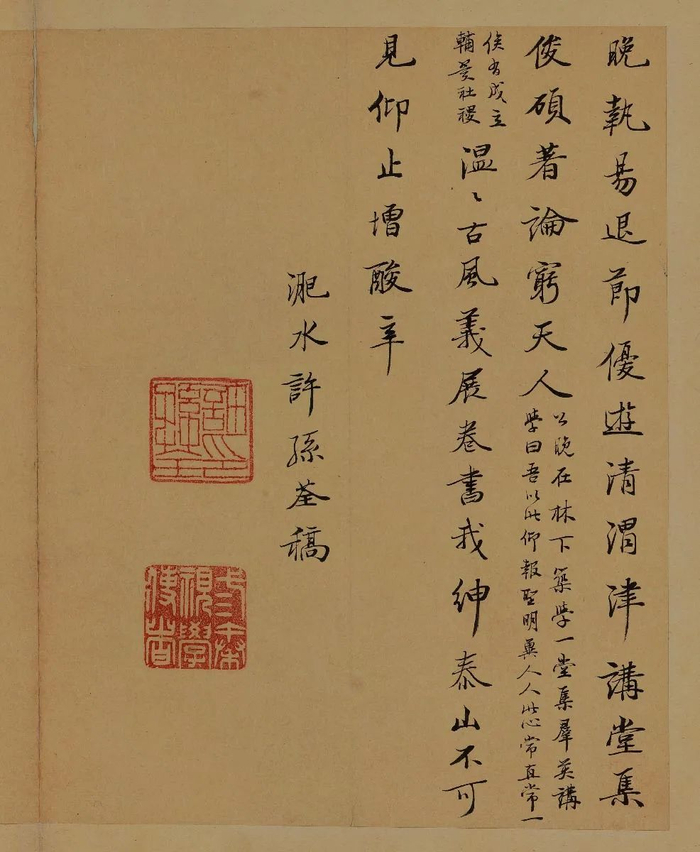 晚執易退節優遊清渭津講堂集
俊碩著論窮天人
公晚在林下築學一堂集羣英講
學曰吾以此仰報聖明冀人人此心常直常一
成立
輔社稷
温〻古風義展卷書我紳泰山不可
見仰止增酸辛
淝水許孫荃稿
許孫荃印
視學使者